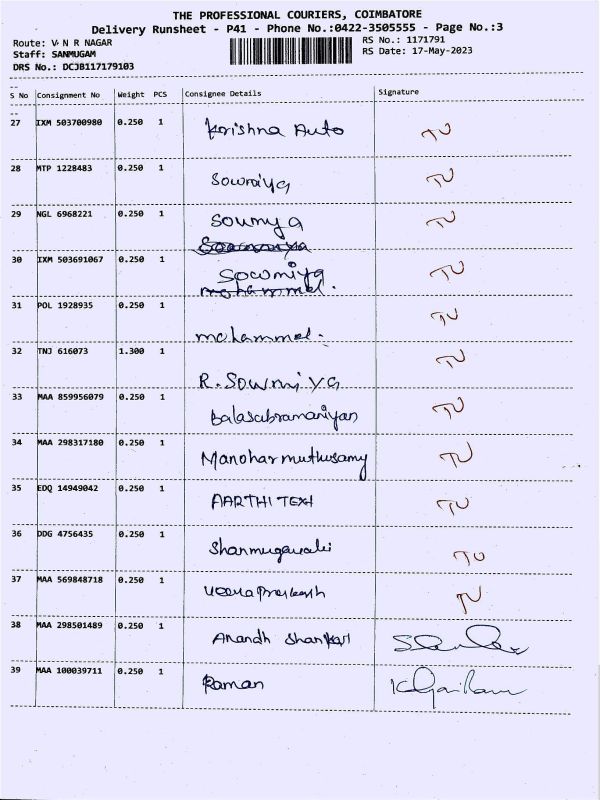 THE PROFESSIONAL COURIERS, COIMBATORE
Delivery Runsheet - P41 - Phone No.:0422-3505555 - Page No.:3
Route: V N R NAGAR RS No.: 1171791
Staff: SANMUGAM RS Date: 17-May-2023
DRS No.: DCJB117179103
S No Consignment No Weight PCS Consignee Details Signature
27 IXM 503700980 0.250 1 Krishna Auto TU
28 MTP 1228483 0.250 1 Sowmiya TU
29 NGL 6968221 0.250 1 Soumya TU
30 IXM 503691067 0.250 1 Sowmiya TU
mohammed.
31 POL 1928935 0.250 1 mohammed. TU
32 TNJ 616073 1.300 1 R. Sowmiya TU
33 MAA 859956079 0.250 1 Balasubramaniyan TU
34 MAA 298317180 0.250 1 Manohar muthusamy TU
35 EDQ 14949042 0.250 1 AARTHI TEXT TU
36 DDG 4756435 0.250 1 Shanmugavalli TU
37 MAA 569848718 0.250 1 Veeraprakash TU
38 MAA 298501489 0.250 1 Anandh Shankar
39 MAA 100039711 0.250 1 Raman